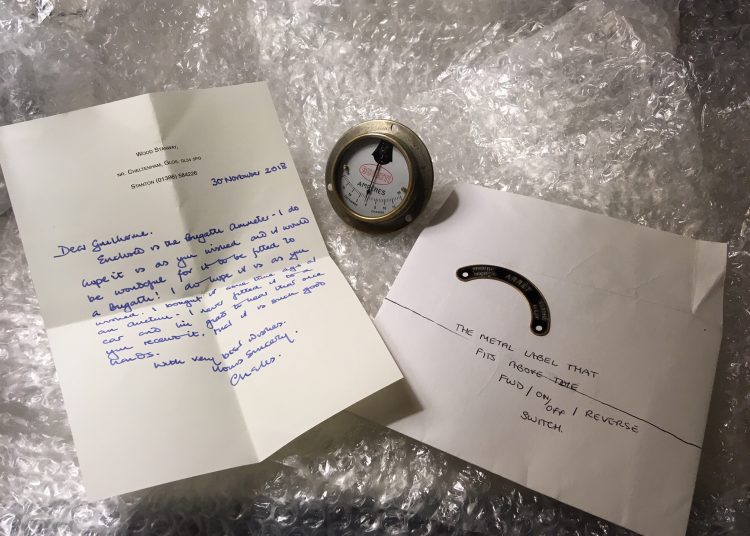 WOOD STANWAY,
NR. CHELTENHAM, GLOS. GL54 5PG
STANTON (01386) 584226
30 November 2018
Dear Guilherme.
Enclosed is the Bugatti Ammeter - I do
hope it is as you wished and it would
be wonderful for it to be fitted to
a Bugatti! I do hope it is as you
wished. I bought it some time ago at
an auction. I never fitted it to a
car and be glad to hear that once
you receive it. it is in such good
hands.
With very best wishes.
Yours sincerely.
Charles.
AMPERES
ARRET
THE METAL LABEL THAT
FITS ABOVE THE
FWD / ON / OFF / REVERSE
SWITCH.